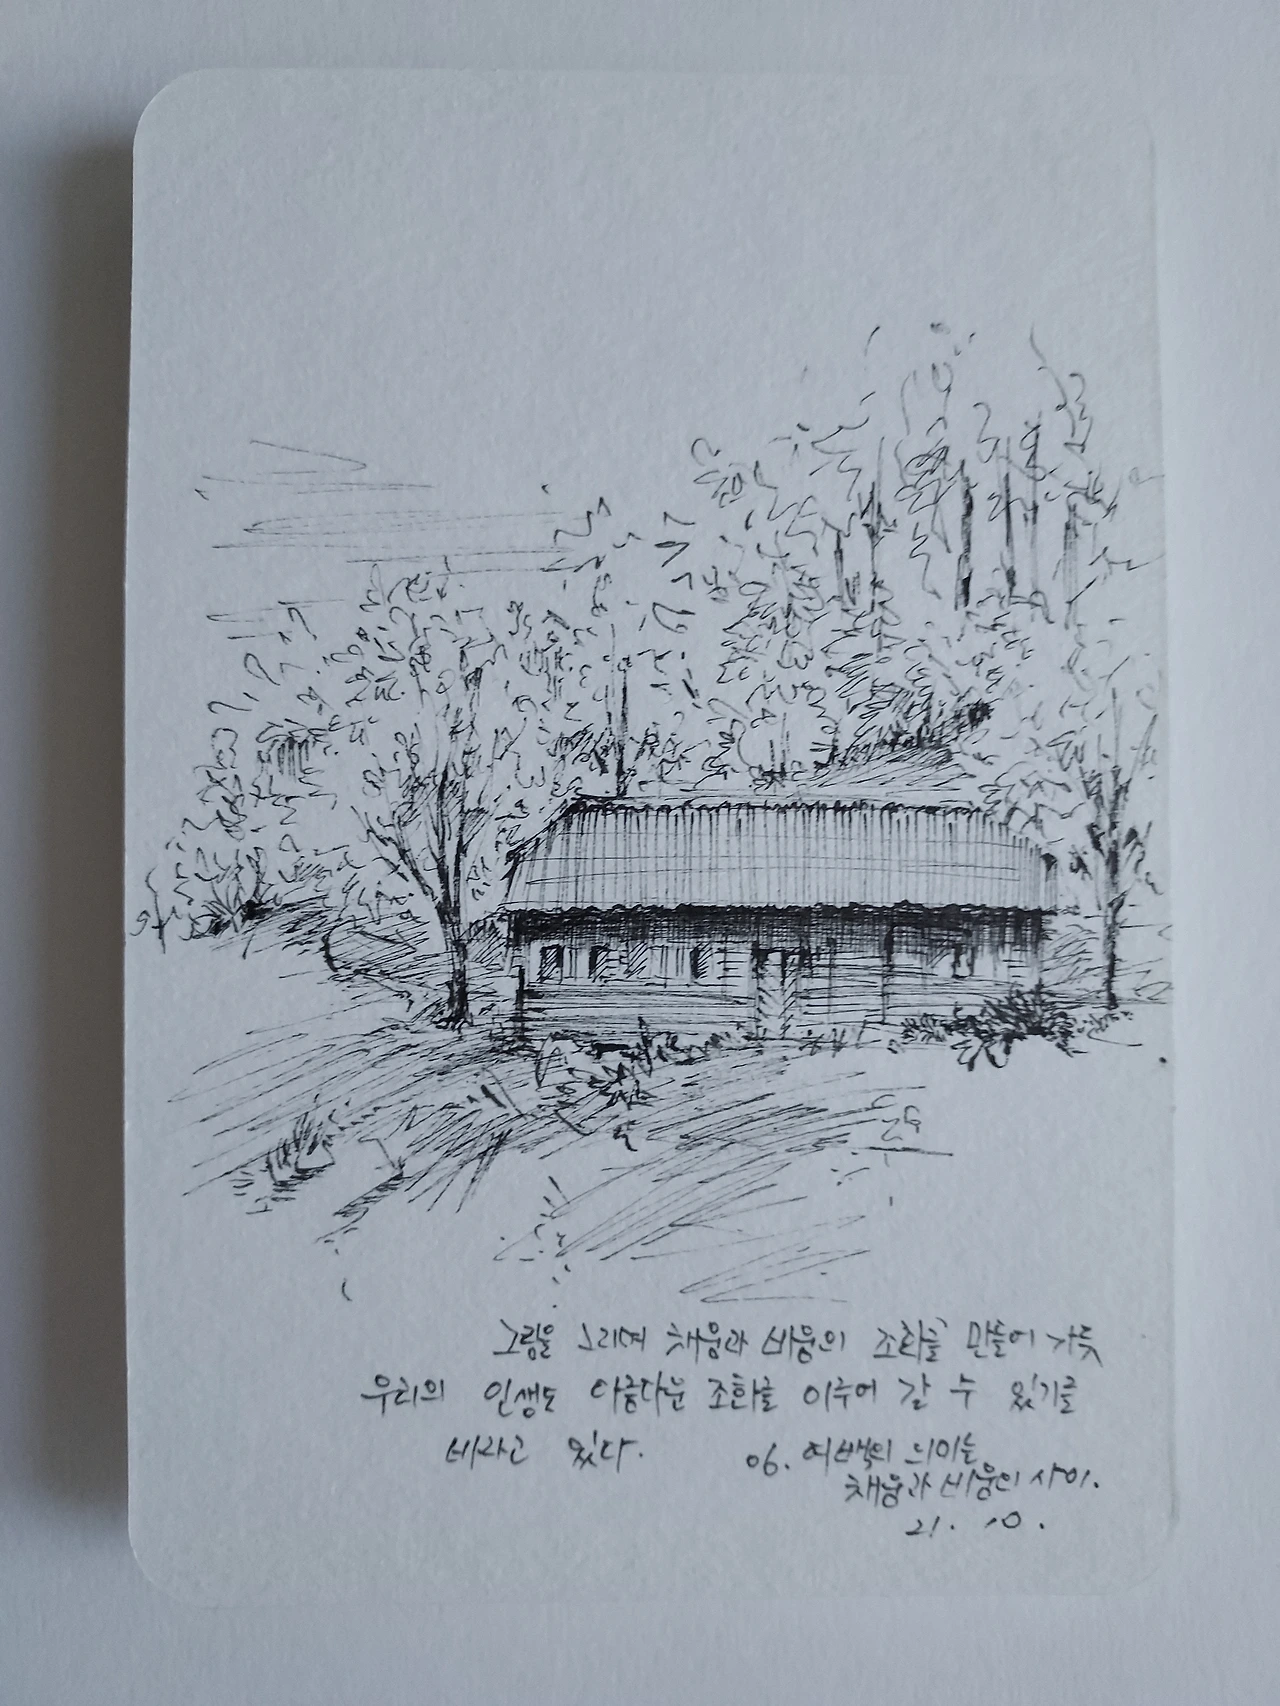 그림을 그리며 채움과 비움의 조화를 만들어 가듯
우리의 인생도 아름다운 조화를 이루어 갈 수 있기를
바라고 있다.
06. 여백의 의미는
채움과 비움의 사이.
21. 10.